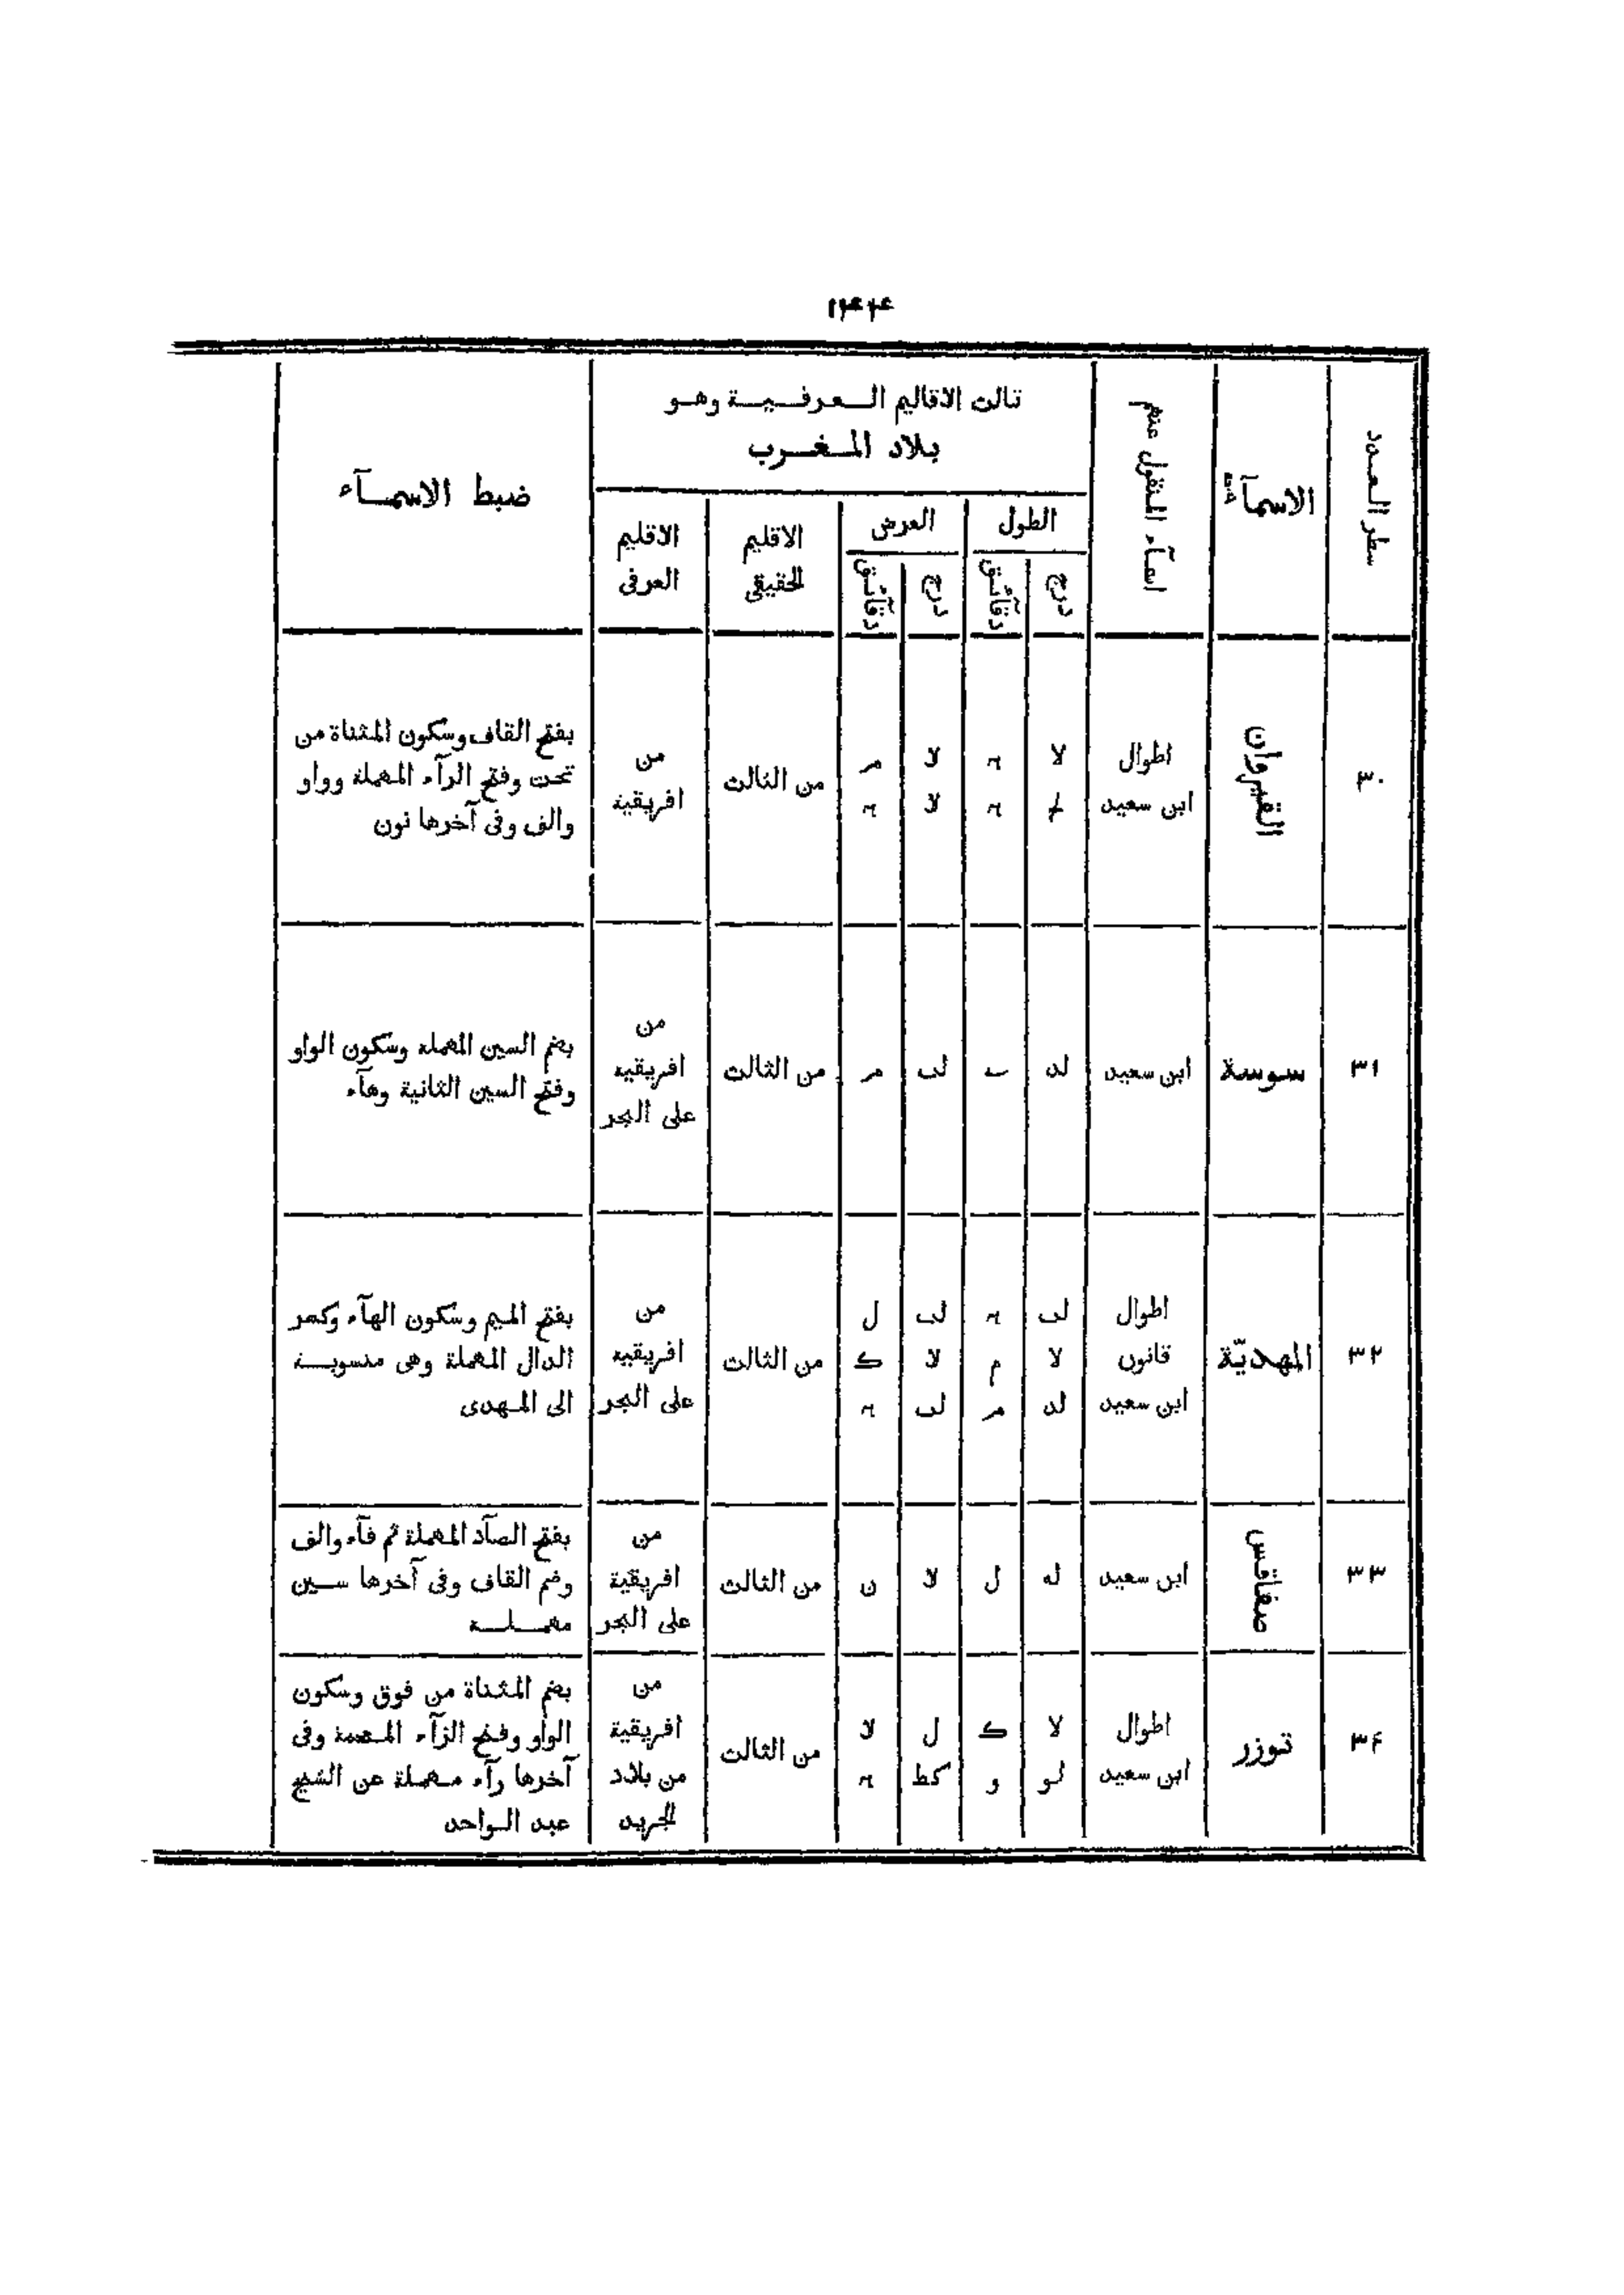 ١٤٤
ثالث الاقاليم العرفية وهو
بلاد المغرب
سطر العدد
الاسمآء
اسمآء المنقول عنهم
الطول
العرض
درج
دقآئق
درج
دقآئق
الاقليم
الحقيقى
الاقليم
العرفى
ضبط الاسمآء
٣٠
القيروان
اطوال
ابن سعيد
لا
لا
لا
م
من الثالث
من
افريقية
بفتح القاف وسكون المثناة من
تحت وفتح الرآء المهملة وواو
والف وفى آخرها نون
٣١
سوسة
ابن سعيد
لد
لب
م
من الثالث
من
افريقيه
على البحر
بضم السين المهمله وسكون الواو
وفتح السين الثانية وهآء
٣٢
المهديّة
اطوال
قانون
ابن سعيد
لب
لا
لد
م
م
لب
لا
لب
ل
ك
من الثالث
من
افريقيه
على البحر
بفتح الميم وسكون الهآء وكسر
الدال المهملة وهى منسوبة
الى المهدى
٣٣
صفاقس
ابن سعيد
له
ل
لا
ن
من الثالث
من
افريقية
على البحر
بفتح الصآد المهملة ثم فآء والف
وضم القاف وفى آخرها سين
مهملة
٣۴
توزر
اطوال
ابن سعيد
لا
لو
ك
و
ل
كط
لا
من الثالث
من
افريقية
من بلاد
الجريد
بضم المثناة من فوق وسكون
الواو وفتح الزآء المعجمة وفى
آخرها رآء مهملة عن الشيخ
عبد الواحد